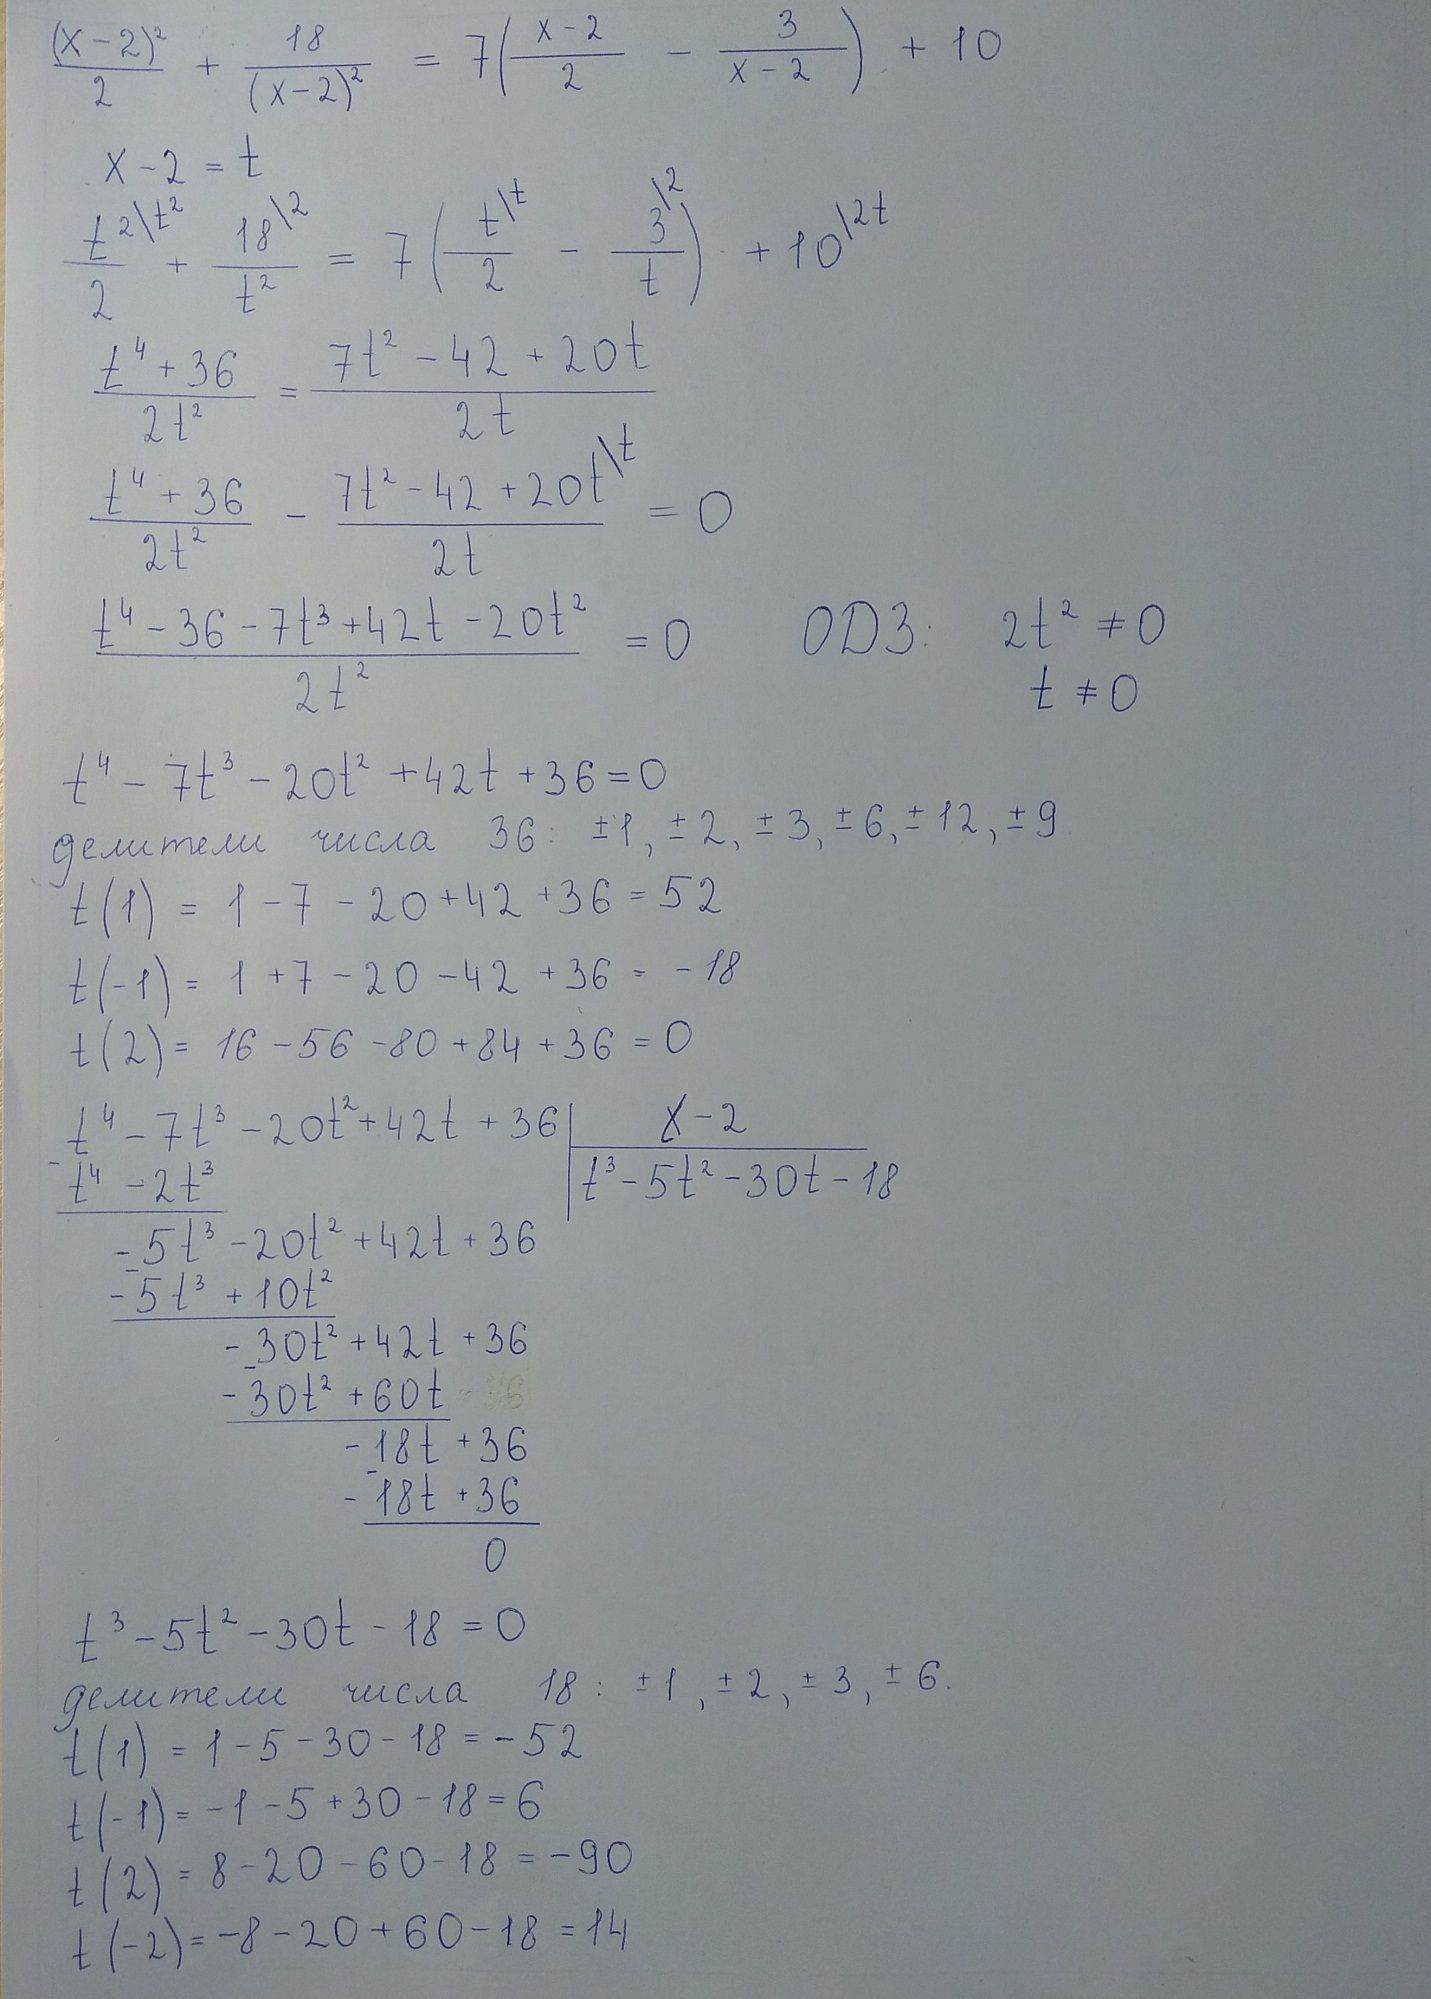 (x-2)²/2 + 18/(x-2)² = 7((x-2)/2 - 3/(x-2)) + 10
x-2 = t
t²\t²/2 + 18\2/t² = 7(t\t/2 - 3\2/t) + 10\2t
(t⁴+36)/2t² = (7t²-42+20t)/2t
(t⁴+36)/2t² - (7t²-42+20t)\t/2t = 0
(t⁴-36-7t³+42t-20t²)/2t² = 0 ОДЗ: 2t² ≠ 0
t ≠ 0
t⁴ - 7t³ - 20t² + 42t + 36 = 0
делители числа 36: ±1, ±2, ±3, ±6, ±12, ±9
t(1) = 1-7-20+42+36 = 52
t(-1) = 1+7-20-42+36 = -18
t(2) = 16-56-80+84+36 = 0
t⁴ - 7t³ - 20t² + 42t + 36 | x-2
- t⁴ - 2t³ | t³-5t²-30t-18
-5t³ - 20t² + 42t + 36
- -5t³ + 10t²
-30t² + 42t + 36
- -30t² + 60t
-18t + 36
- -18t + 36
0
t³ - 5t² - 30t - 18 = 0
делители числа 18: ±1, ±2, ±3, ±6.
t(1) = 1-5-30-18 = -52
t(-1) = -1-5+30-18 = 6
t(2) = 8-20-60-18 = -90
t(-2) = -8-20+60-18 = 14